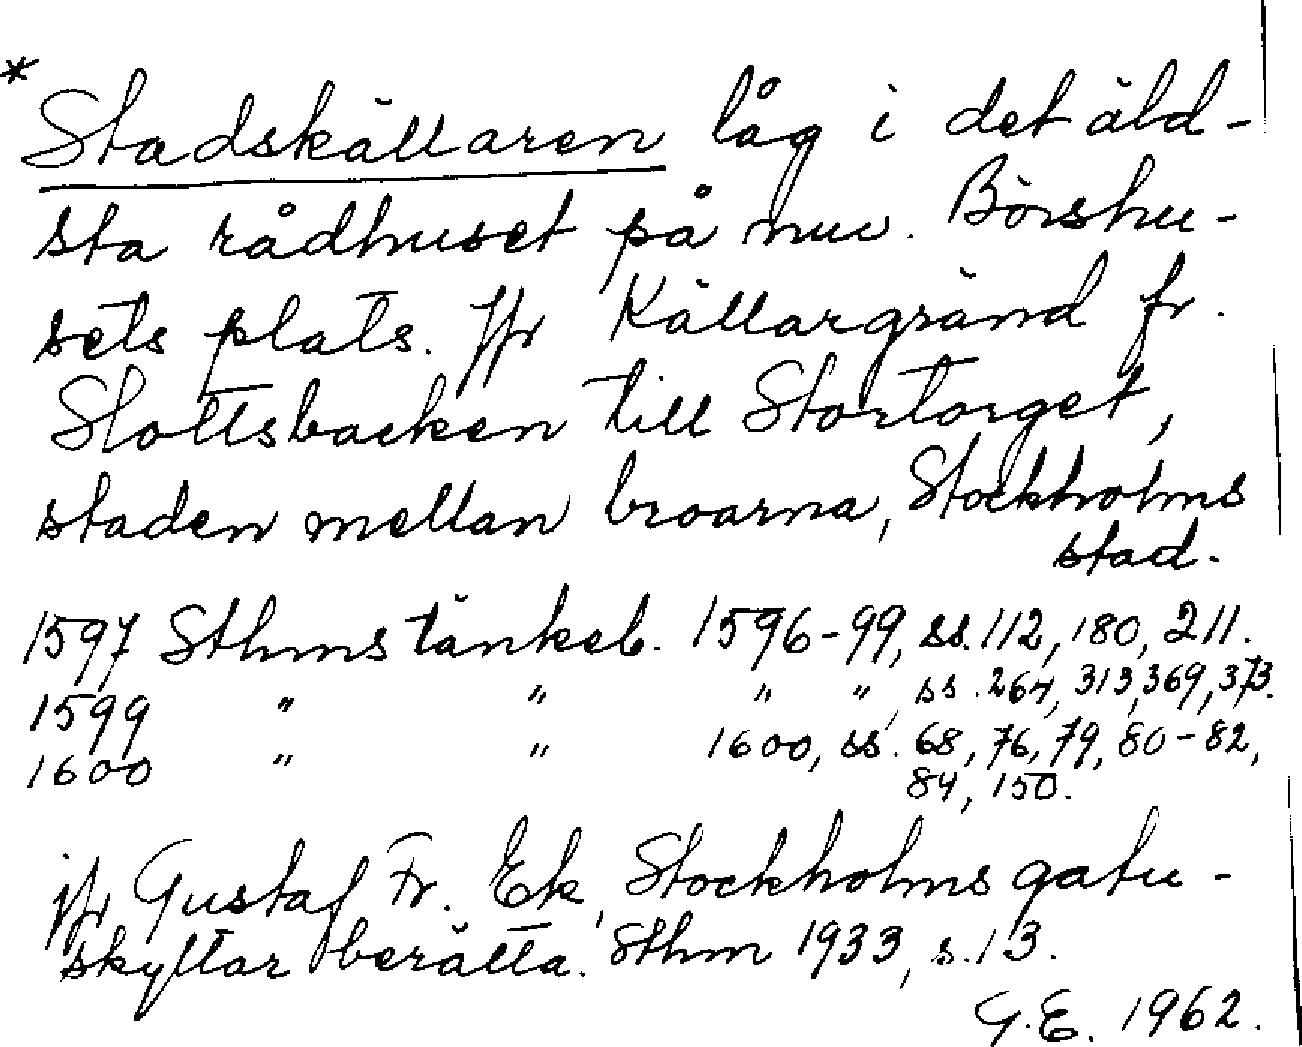 * Stadskällaren låg i det äld-
sta rådhuset på nuv. Börshu-
sets plats. Jfr Källargränd fr.
Slottsbacken till Stortorget,
staden mellan broarna, Stockholms
stad.
1597 Sthms tänkeb. 1596-99, ss. 112, 180, 211.
1599 " " " ", ss. 264, 313, 369, 373.
1600 " " 1600, ss. 68, 76, 79, 80-82,
84, 150.
jfr Gustaf Fr. Ek, Stockholms gatu-
skyltar berätta. Sthm 1933, s. 13.
G.E. 1962.